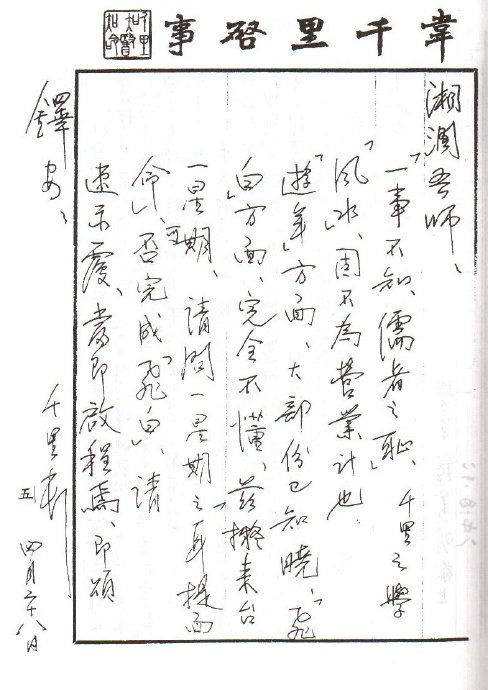 韋千里啓事
湘潤吾師、
「一事不知、儒者之恥」、千里之學
「風水」、固不為營業計也、
「遊年」方面、大部份已知曉、「飛
白」方面、完全不懂、茲擬來台
一星期、請問一星期之耳提面
命、可否完成「飛白」、請
速示覆、當即啟程焉、即頌
鐸安、
千里
五
四月二十八日